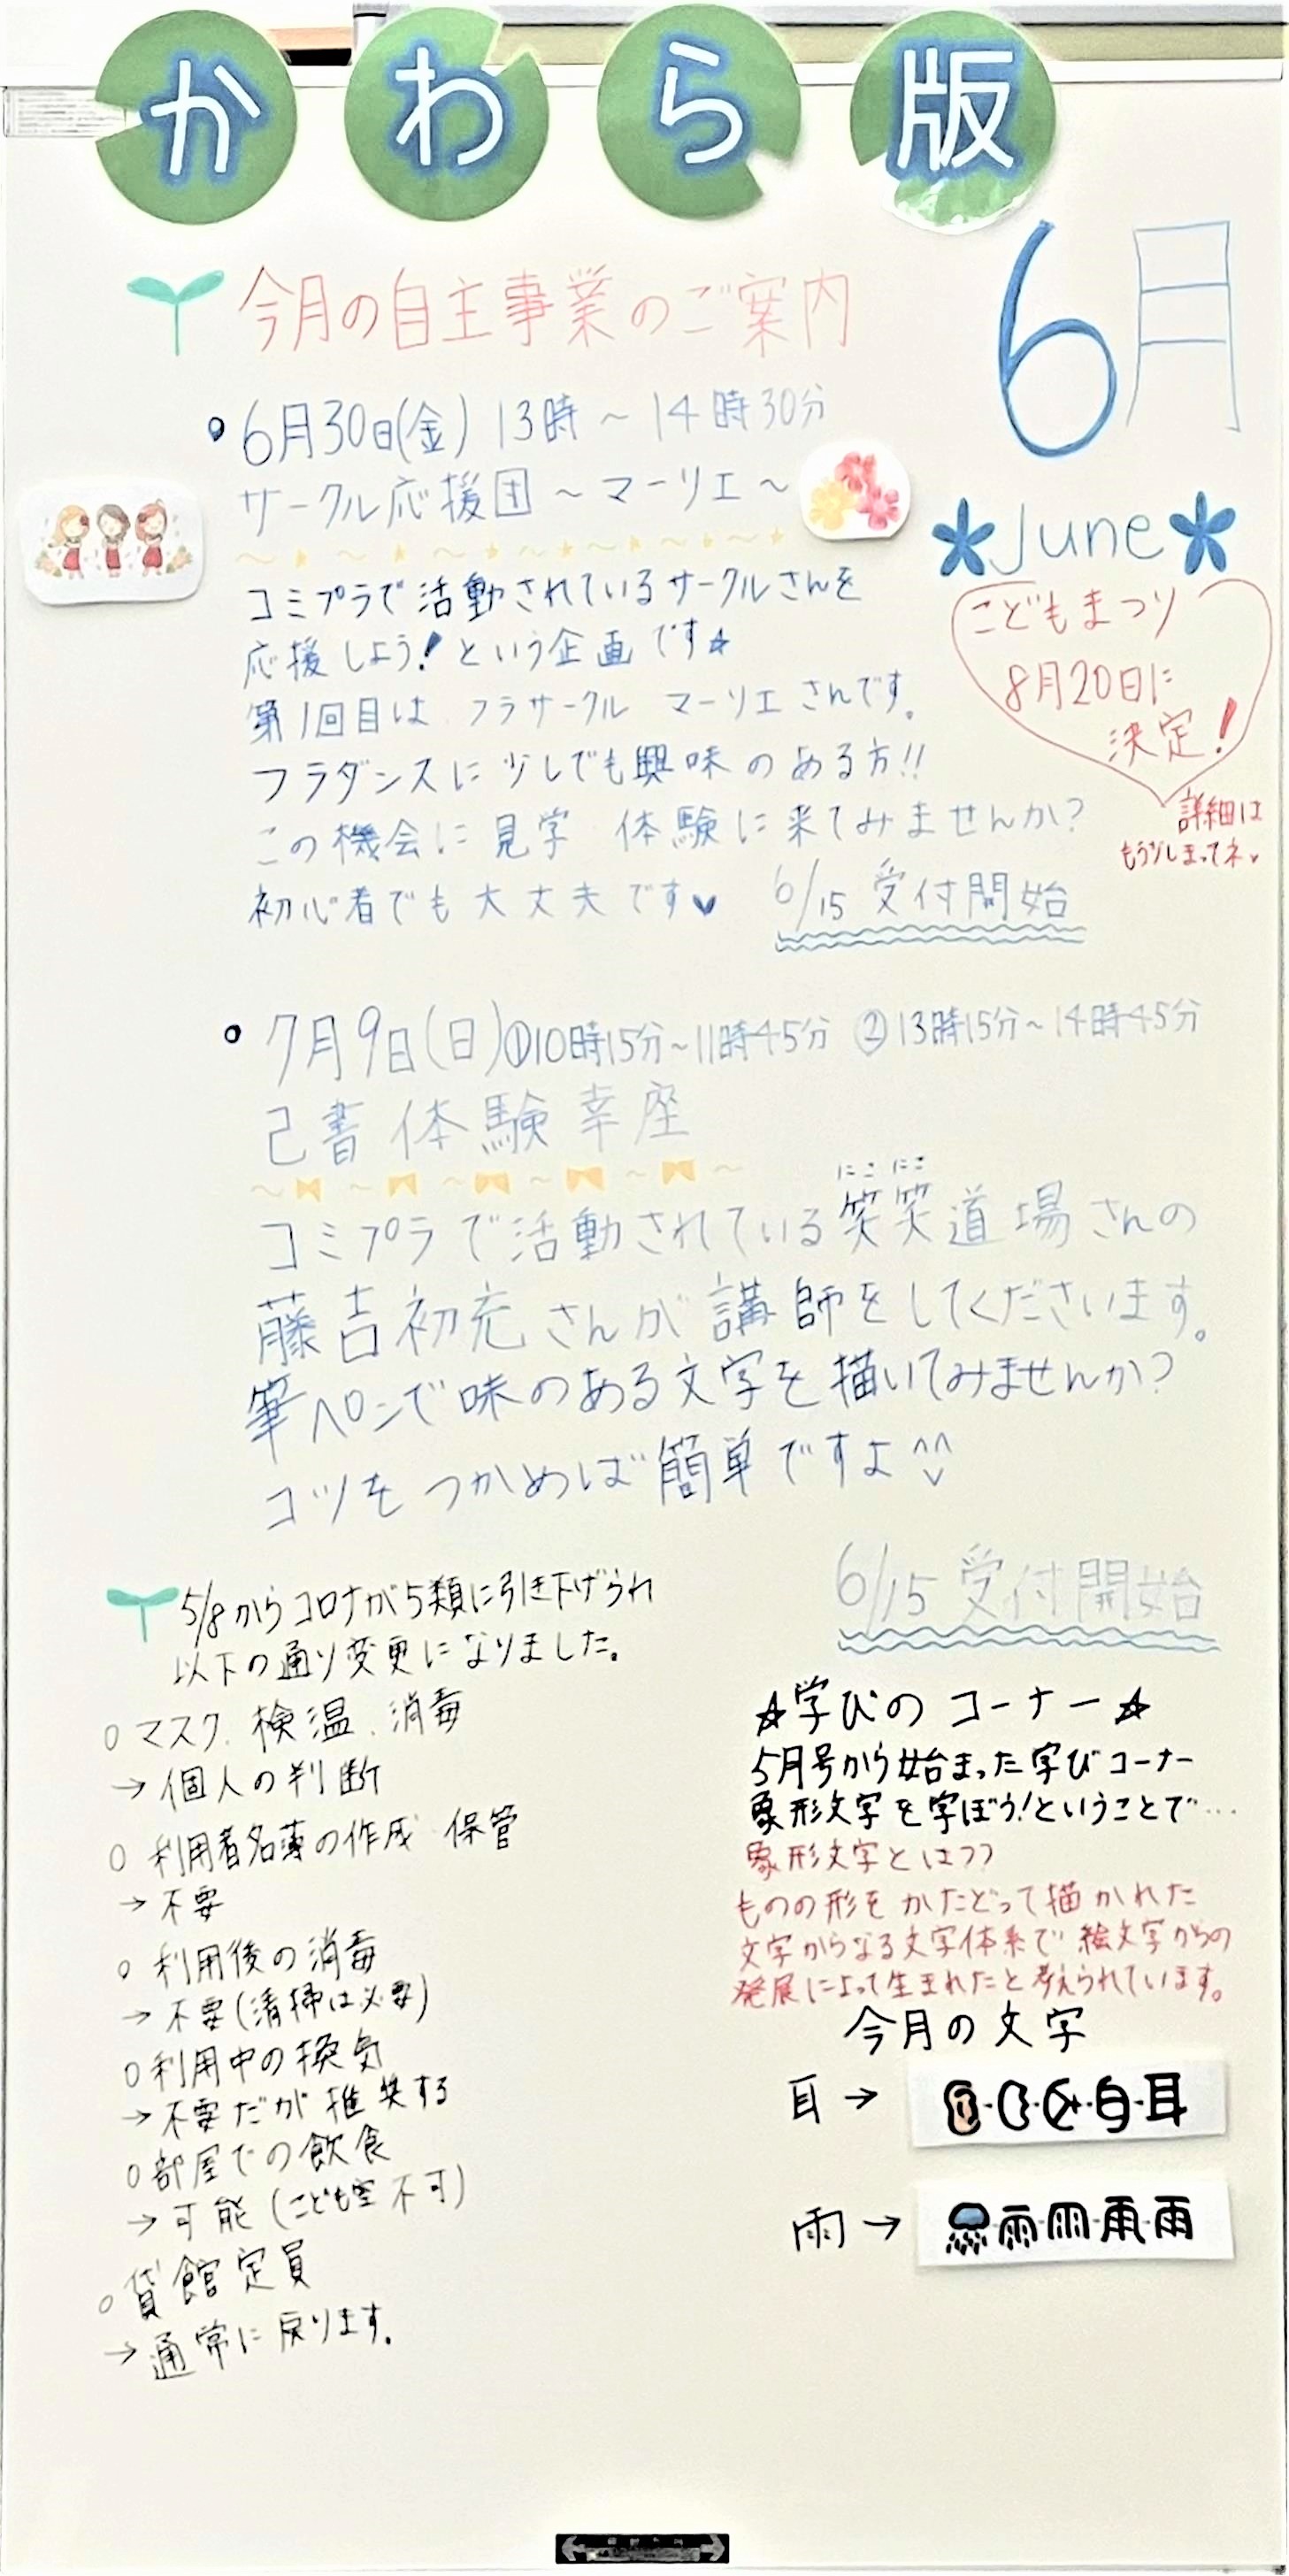 かわら版
6月
June
今月の自主事業のご案内
6月30日(金) 13時〜14時30分
サークル応援団〜マーリエ〜
コミプラで活動されているサークルさんを
応援しよう!という企画です☆
第1回目は フラサークル マーリエさんです。
フラダンスに少しでも興味のある方!!
この機会に見学・体験に来てみませんか?
初心者でも大丈夫です♥
6/15 受付開始
こどもまつり
8月20日に
決定!
詳細は
もう少しまってネ
7月9日(日)①10時15分〜11時45分 ②13時15分〜14時45分
己書体験幸座
にこ にこ
コミプラで活動されている笑笑道場さんの
藤吉初充さんが講師をしてくださいます。
筆ペンで味のある文字を描いてみませんか?
コツをつかめば簡単ですよ^^
6/15 受付開始
5/8からコロナが5類に引き下げられ
以下の通り変更になりました。
○マスク、検温、消毒
→個人の判断
○利用者名簿の作成・保管
→不要
○利用後の消毒
→不要(清掃は必要)
○利用中の換気
→不要だが推奨する
○部屋での飲食
→可能(こども室不可)
○貸館定員
→通常に戻ります。
☆学びのコーナー☆
5月号から始まった学びコーナー
象形文字を学ぼう!ということで…
象形文字とは??
ものの形をかたどって描かれた
文字からなる文字体系で絵文字からの
発展によって生まれたと考えられています。
今月の文字
耳→
耳
雨→
雨